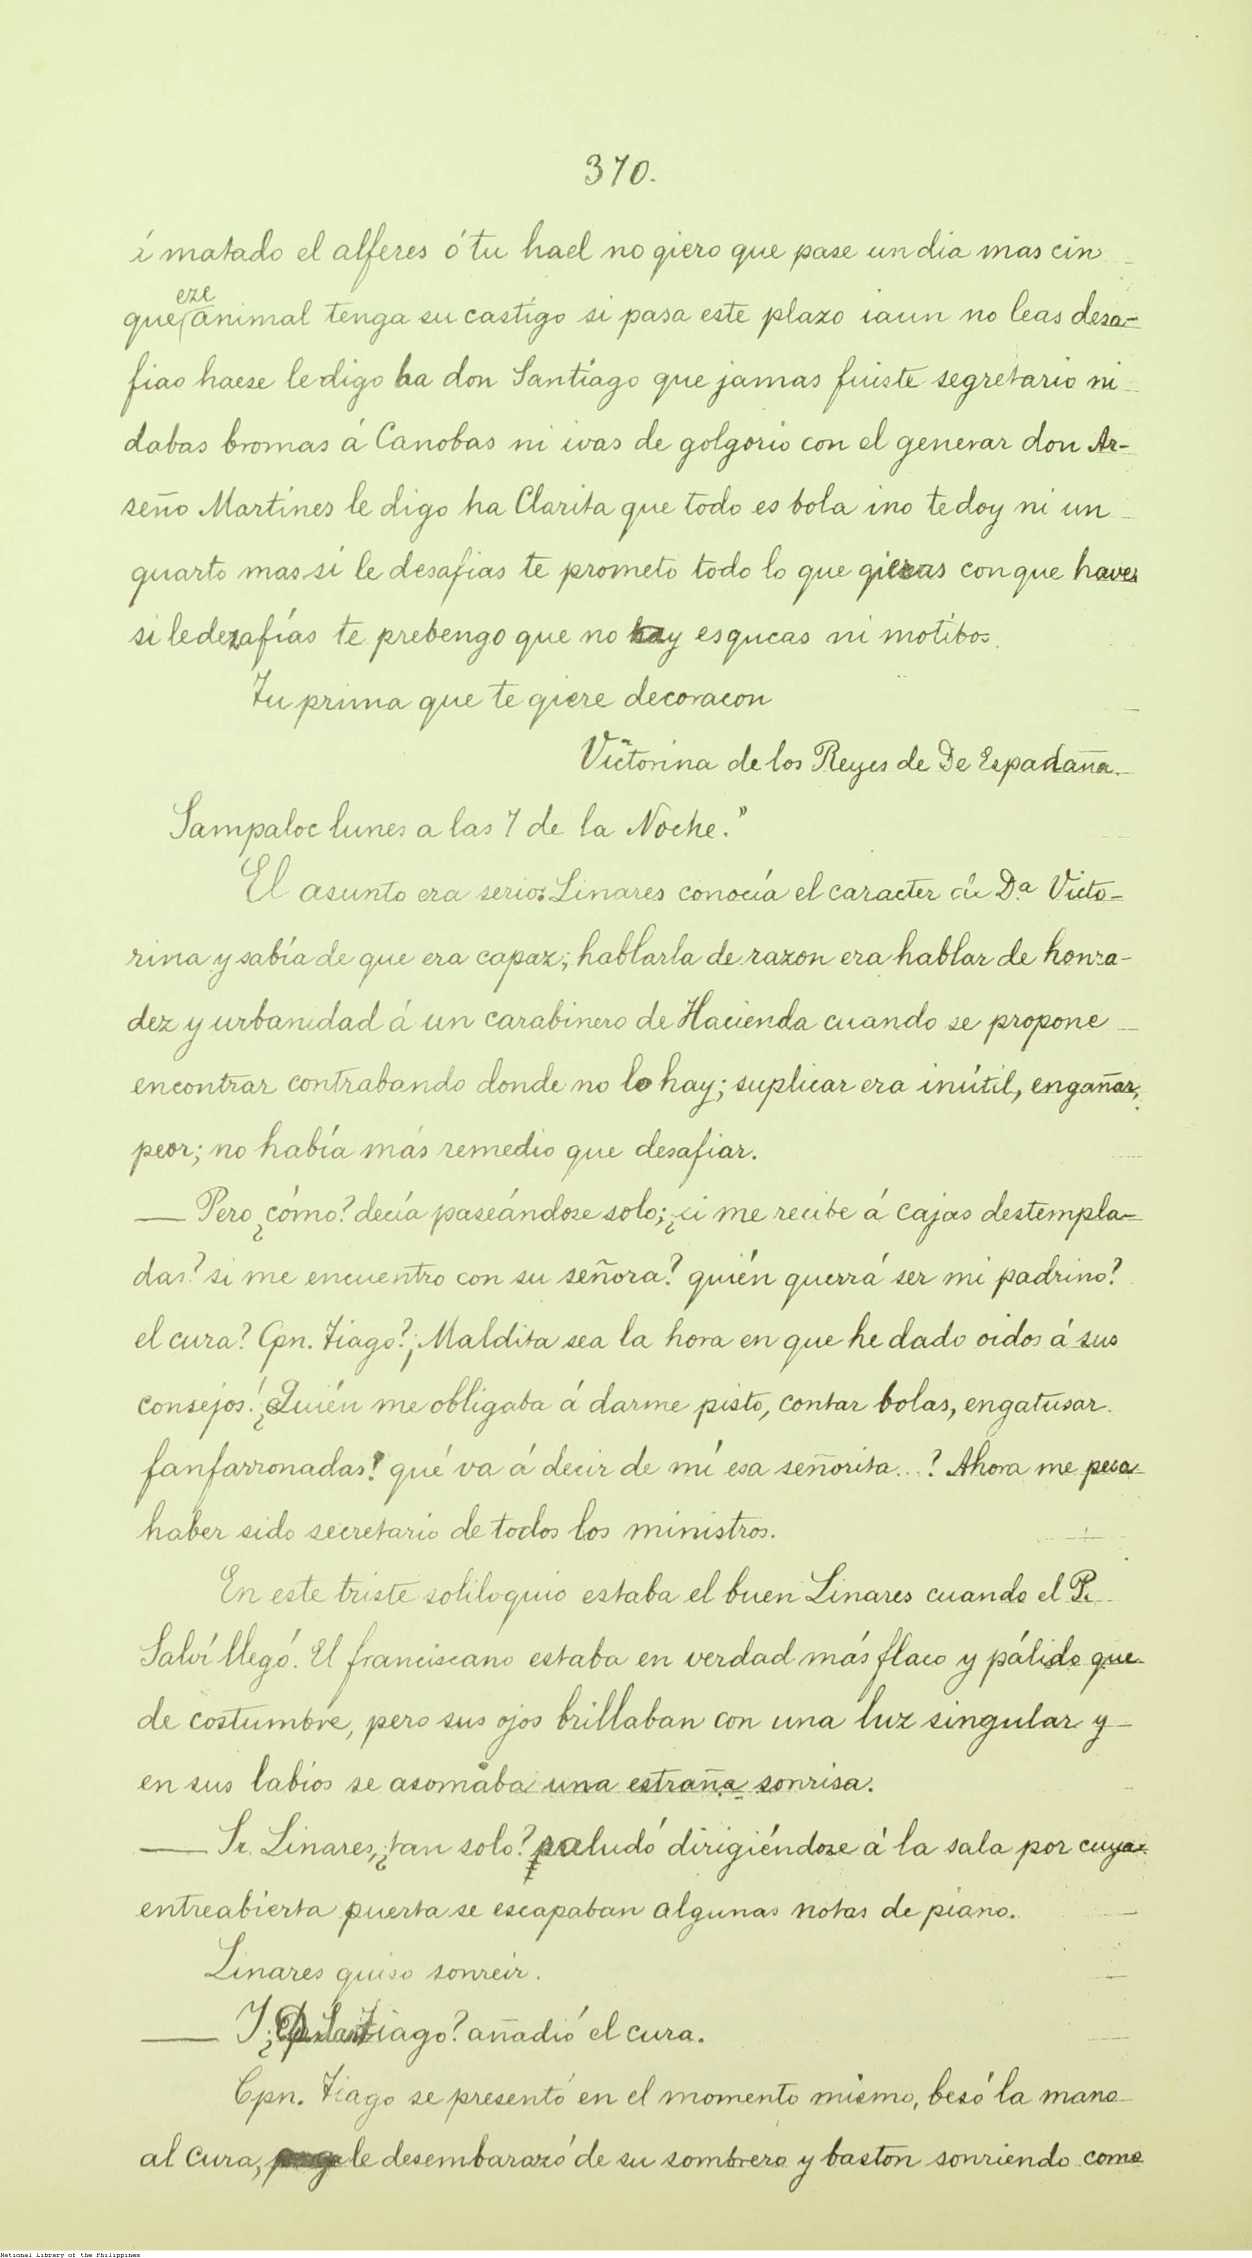 370.
i matado el alferes ó tu hael no giero que pase un dia mas cin
eze
que animal tenga su castigo si pasa este plazo iaun no leas desa-
fiao haese le digo ha don Santiago que jamas fuiste segretario ni
dabas bromas á Canobas ni ivas de golgorio con el generar don Ar-
seño Martines le digo ha Clarita que todo es bola ino te doy ni un
quarto mas si le desafias te prometo todo lo que gieras con que haver
si le dezafías te prebengo que no hay esqucas ni motibos.
Tu prima que te giere decoracon
Victorina de los Reyes de De Espadaña.
Sampaloc lunes a las 7 de la Noche."
El asunto era serio: Linares conocía el caracter de D.ª Victo-
rina y sabía de que era capaz; hablarla de razon era hablar de honra-
dez y urbanidad á un carabinero de Hacienda cuando se propone
encontrar contrabando donde no lo hay; suplicar era inútil, engañar,
peor; no había más remedio que desafiar.
— Pero ¿cómo? decía paseándose solo; ¿si me recibe á cajas destempla-
das? si me encuentro con su señora? quién querrá ser mi padrino?
el cura? Cpn. Tiago? ¡Maldita sea la hora en que he dado oidos á sus
consejos! ¿Quién me obligaba á darme pisto, contar bolas, engatusar
fanfarronadas! qué va á decir de mí esa señorita...? Ahora me pesa
haber sido secretario de todos los ministros.
En este triste soliloquio estaba el buen Linares cuando el P.
Salví llegó. El franciscano estaba en verdad más flaco y pálido que
de costumbre, pero sus ojos brillaban con una luz singular y
en sus labios se asomaba una estraña sonrisa.
— Sr. Linares, ¿tan solo? saludó dirigiéndose á la sala por cuya
entreabierta puerta se escapaban algunas notas de piano.
Linares quiso sonreir.
— Y ¿ Santiago? añadió el cura.
Cpn. Tiago se presentó en el momento mismo, besó la mano
al cura, le desembarazó de su sombrero y baston sonriendo como
National Library of the Philippines